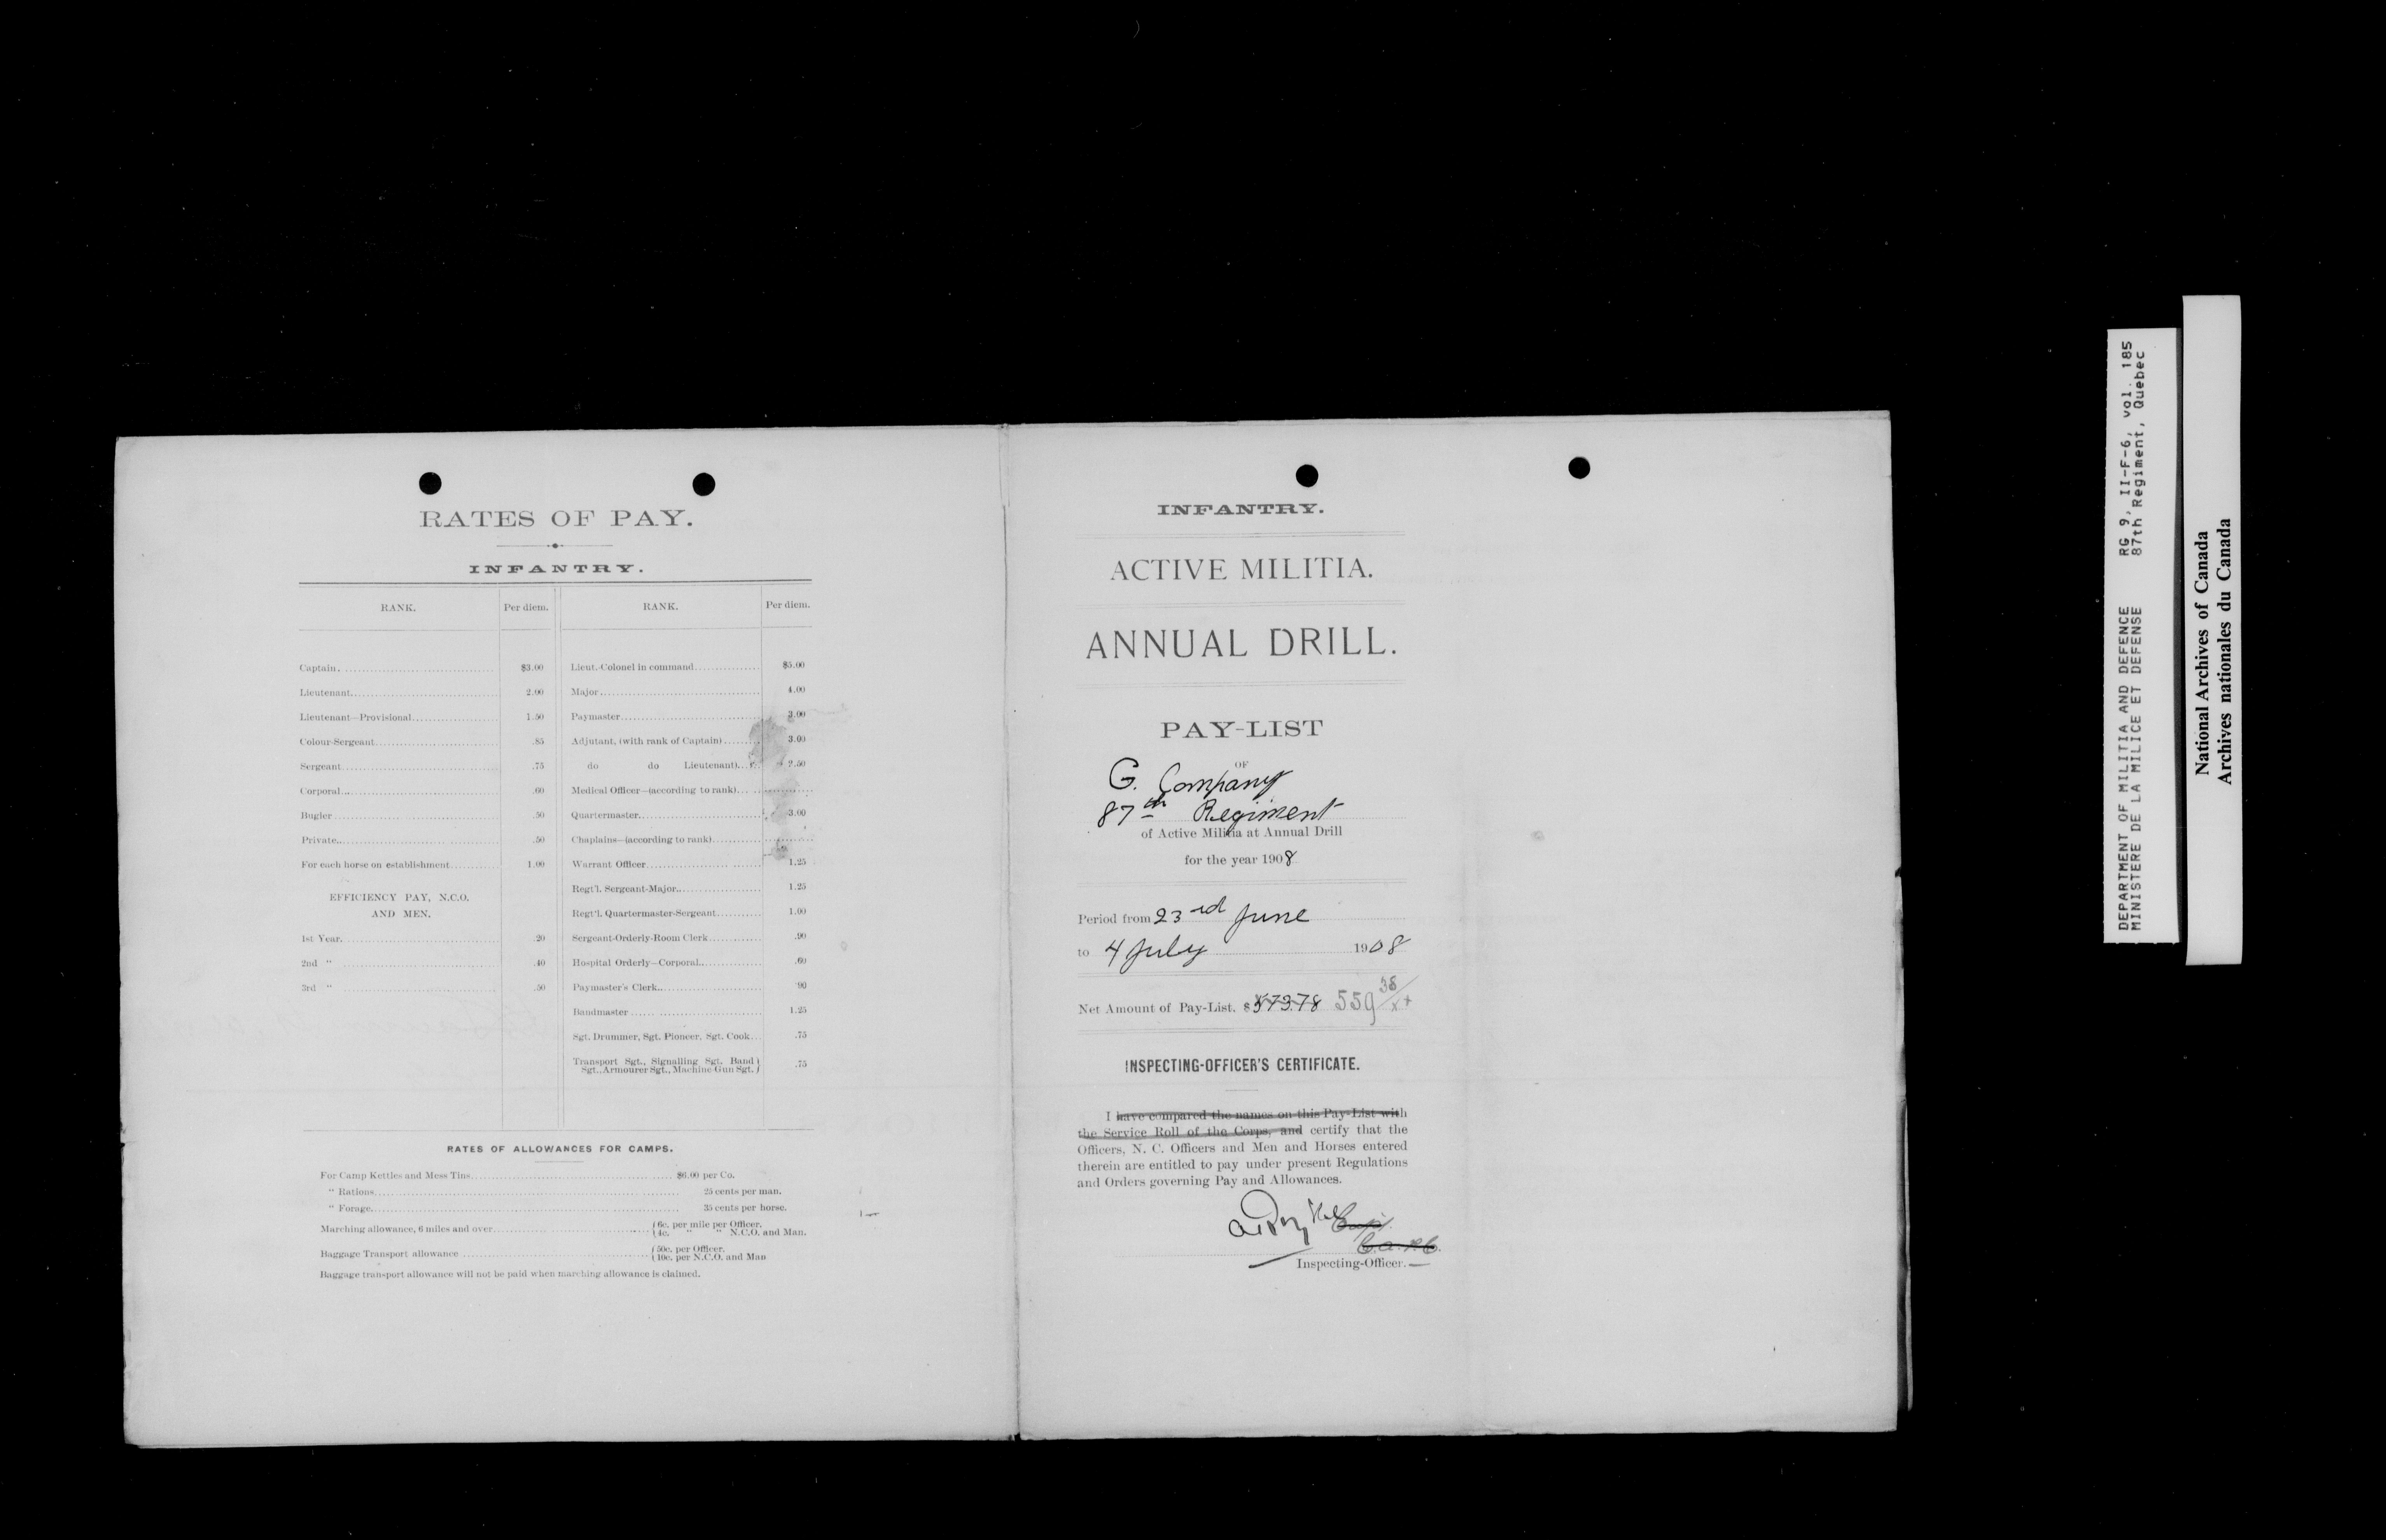 RATES OF PAY.
INFANTRY.
RANK. Per diem. RANK. Per diem.
Captain $3.00 Lieut.-Colonel in command $5.00
Lieutenant 2.00 Major 4.00
Lieutenant—Provisional 1.50 Paymaster 3.00
Colour-Sergeant .85 Adjutant, (with rank of Captain) 3.00
Sergeant .75 do do Lieutenant) 2.50
Corporal .60 Medical Officer—(according to rank)
Bugler .50 Quartermaster 3.00
Private .50 Chaplains—(according to rank)
For each horse on establishment 1.00 Warrant Officer 1.25
EFFICIENCY PAY, N.C.O. Regt'l. Sergeant-Major 1.25
AND MEN. Regt'l. Quartermaster-Sergeant 1.00
1st Year .20 Sergeant-Orderly-Room Clerk .90
2nd " .40 Hospital Orderly—Corporal .60
3rd " .50 Paymaster's Clerk .90
Bandmaster 1.25
Sgt. Drummer, Sgt. Pioneer, Sgt. Cook .75
Transport Sgt., Signalling Sgt. Band
Sgt., Armourer Sgt., Machine Gun Sgt. .75
RATES OF ALLOWANCES FOR CAMPS.
For Camp Kettles and Mess Tins $6.00 per Co.
" Rations 25 cents per man.
" Forage 35 cents per horse.
Marching allowance, 6 miles and over 6c. per mile per Officer.
4c. " " N.C.O. and Man.
Baggage Transport allowance 50c. per Officer.
10c. per N.C.O. and Man
Baggage transport allowance will not be paid when marching allowance is claimed.
INFANTRY.
ACTIVE MILITIA.
ANNUAL DRILL.
PAY-LIST
OF
G. Company
87th Regiment
of Active Militia at Annual Drill
for the year 1908
Period from 23rd June
to 4 July 1908
Net Amount of Pay-List, $573.78 559 38
INSPECTING-OFFICER'S CERTIFICATE.
I have compared the names on this Pay-List with
the Service Roll of the Corps, and certify that the
Officers, N. C. Officers and Men and Horses entered
therein are entitled to pay under present Regulations
and Orders governing Pay and Allowances.
Inspecting-Officer.
DEPARTMENT OF MILITIA AND DEFENCE RG 9, II-F-6, vol. 185
MINISTERE DE LA MILICE ET DEFENSE 87th Regiment, Quebec
National Archives of Canada
Archives nationales du Canada